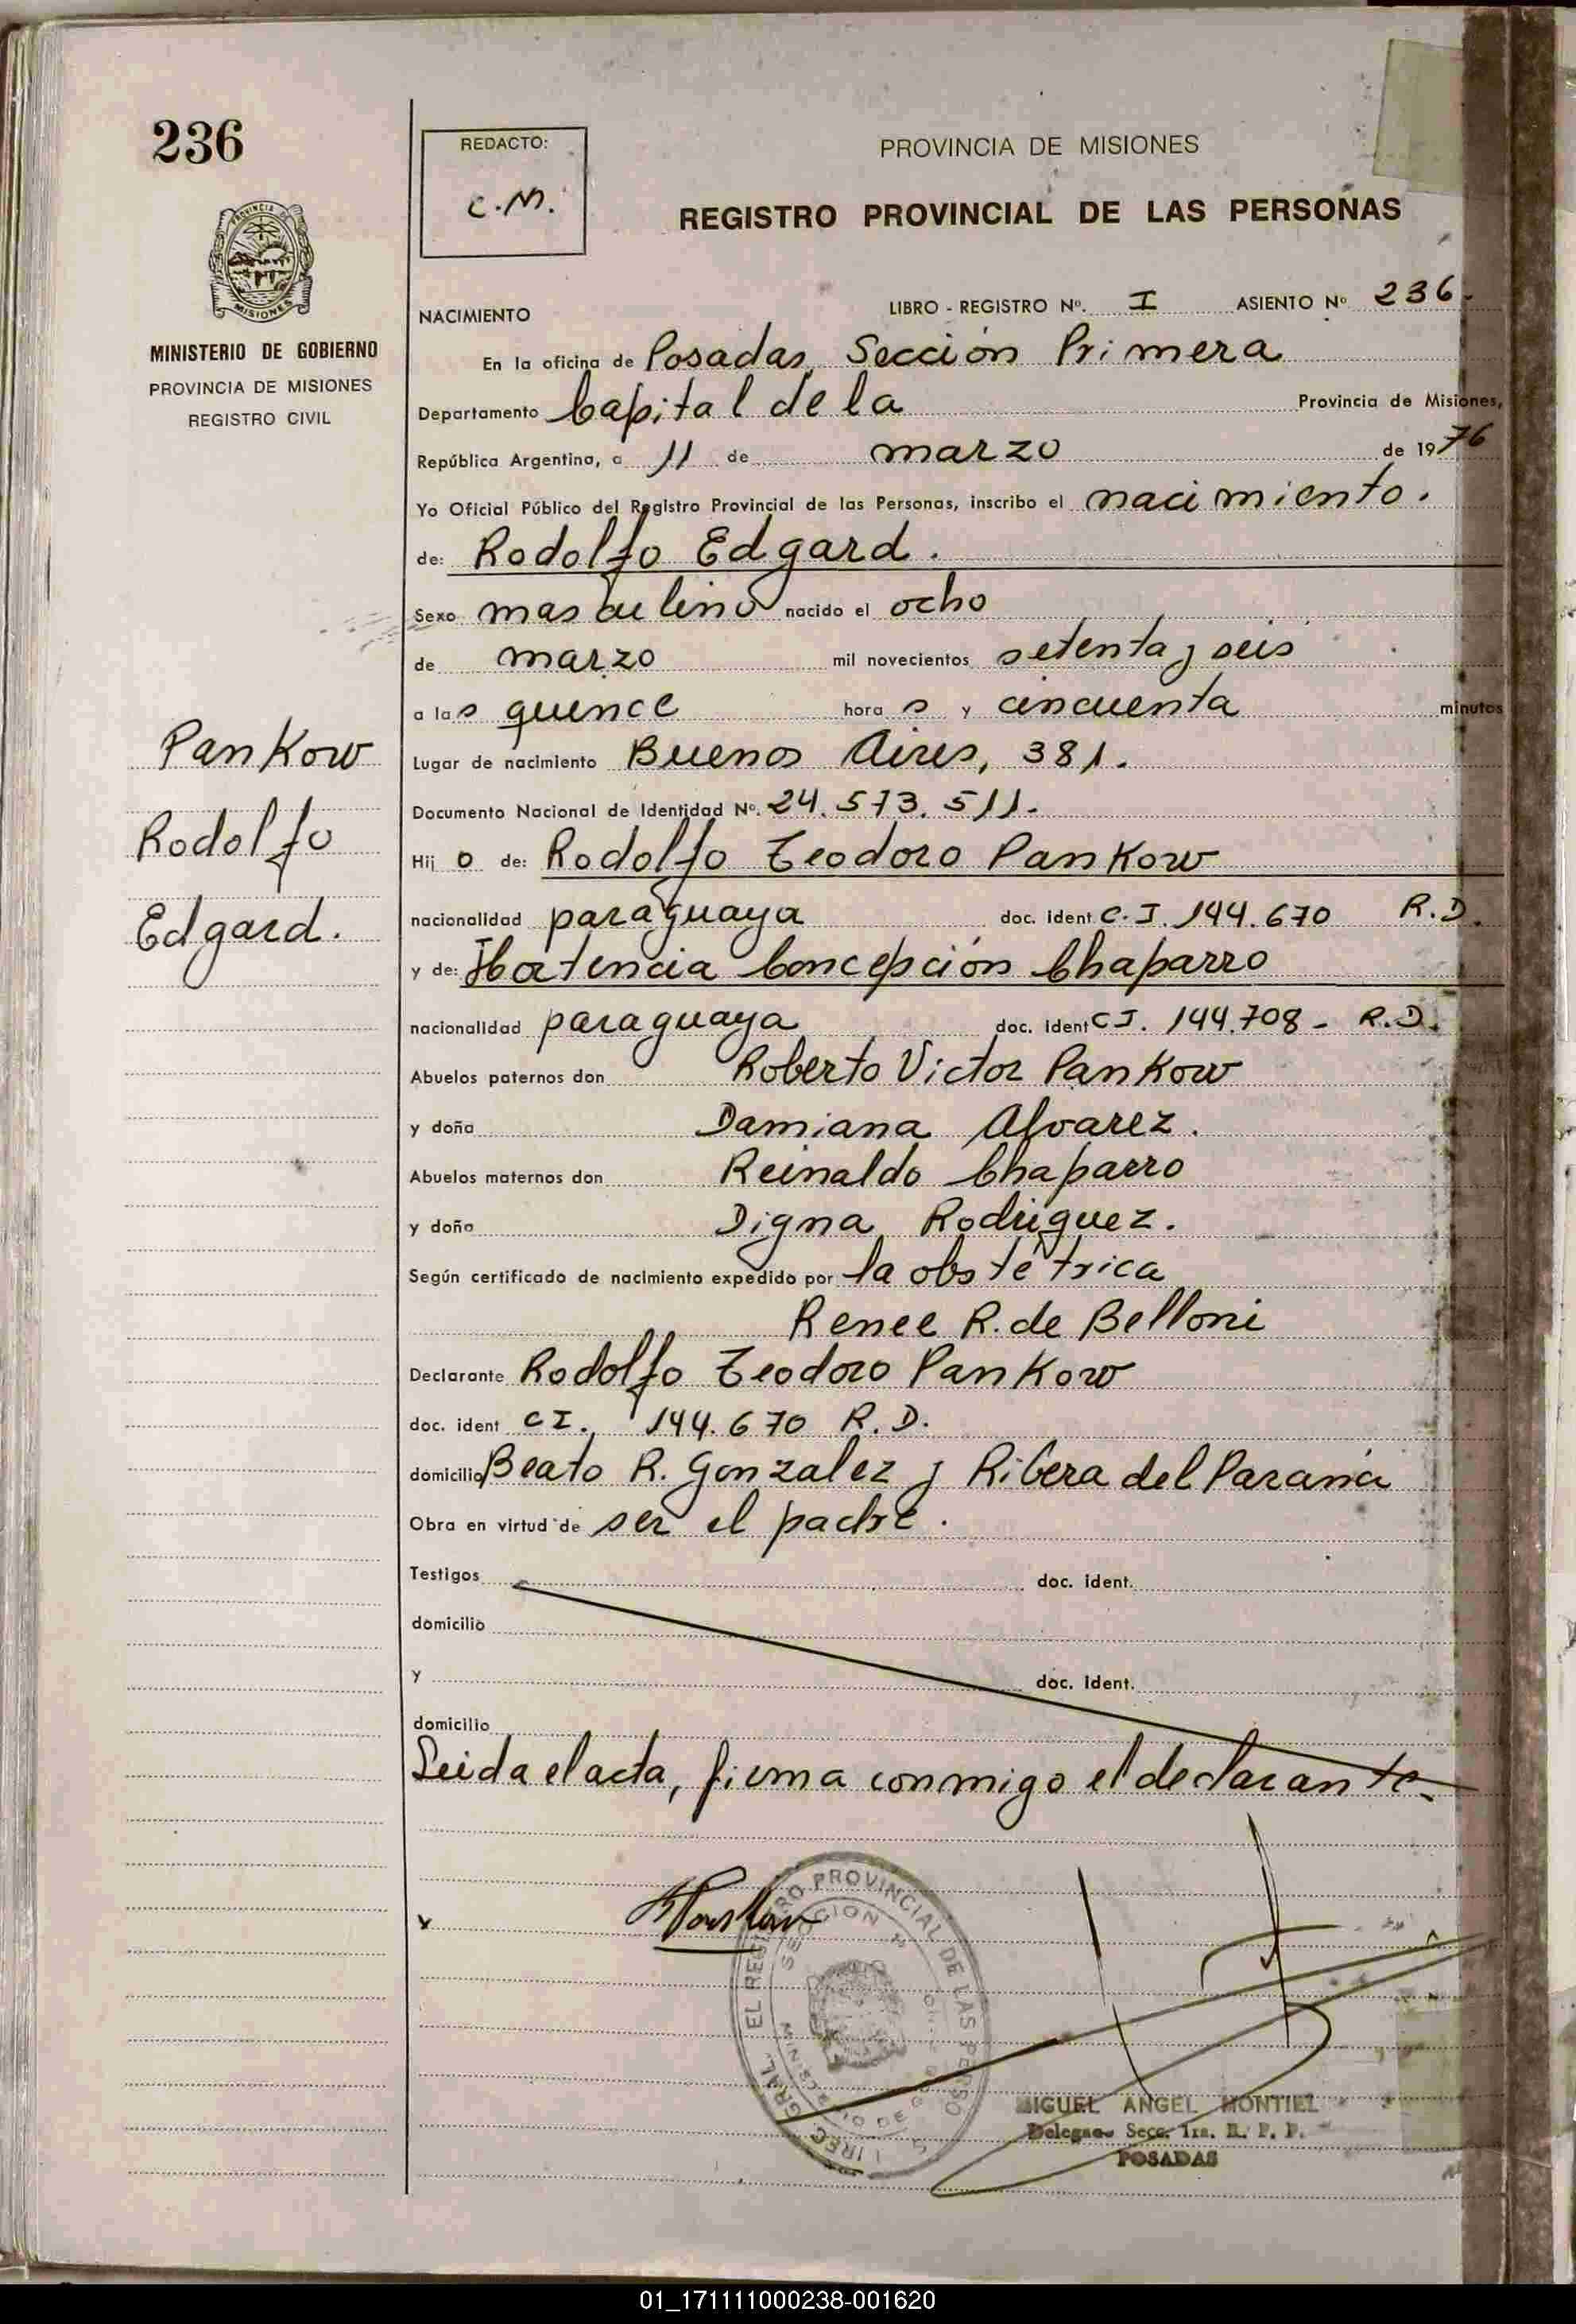 236
PROVINCIA DE
MISIONES
MINISTERIO DE GOBIERNO
PROVINCIA DE MISIONES
REGISTRO CIVIL
Pankow
Rodolfo
Edgard.
REDACTO:
C.M.
PROVINCIA DE MISIONES
REGISTRO PROVINCIAL DE LAS PERSONAS
NACIMIENTO LIBRO - REGISTRO Nº. I ASIENTO Nº 236.
En la oficina de Posadas, Sección Primera
Departamento Capital de la Provincia de Misiones,
República Argentina, a 11 de marzo de 1976
Yo Oficial Público del Registro Provincial de las Personas, inscribo el nacimiento.
de: Rodolfo Edgard.
Sexo masculino nacido el ocho
de marzo mil novecientos setenta y seis
a las quince horas y cincuenta minutos
Lugar de nacimiento Buenos Aires, 381.
Documento Nacional de Identidad Nº. 24.573.511.
Hijo de: Rodolfo Teodoro Pankow
nacionalidad paraguaya doc. ident. C.I. 144.670 R.D.
y de: Hortencia Concepción Chaparro
nacionalidad paraguaya doc. ident C.I. 144.708 - R.D.
Abuelos paternos don Roberto Victor Pankow
y doña Damiana Alvarez.
Abuelos maternos don Reinaldo Chaparro
y doña Digna Rodriguez.
Según certificado de nacimiento expedido por la obstétrica
Renee R. de Belloni
Declarante Rodolfo Teodoro Pankow
doc. ident C.I. 144.670 R.D.
domicilio Beato R. Gonzalez y Ribera del Paraná
Obra en virtud de ser el padre.
Testigos doc. ident.
domicilio
y doc. ident.
domicilio
Leida el acta, firma conmigo el declarante.
R Pankow
GRAL. EL REGISTRO PROVINCIAL DE LAS PERSO
SECCION 1ª
MINISTERIO DE
MIGUEL ANGEL MONTIEL
Delegado Secc. 1ra. R. P. P.
POSADAS
01_171111000238-001620